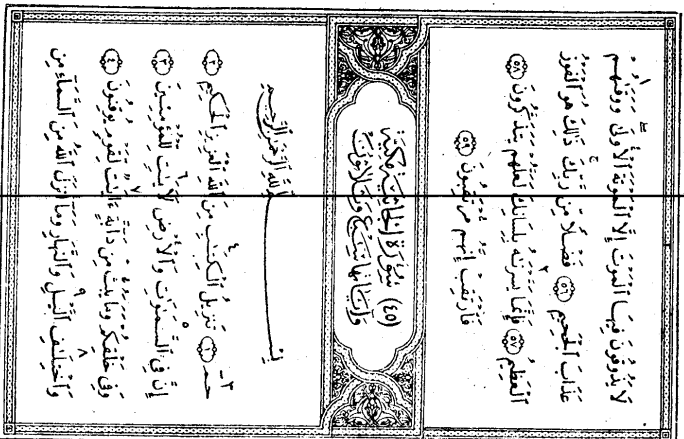 لَا يَذُوقُونَ فِيهَا ٱلْمَوْتَ إِلَّا ٱلْمَوْتَةَ ٱلْأُولَىٰ وَوَقَىٰهُمْ
عَذَابَ ٱلْجَحِيمِ ٥٦ فَضْلًا مِّن رَّبِّكَ ذَٰلِكَ هُوَ ٱلْفَوْزُ
ٱلْعَظِيمُ ٥٧ فَإِنَّمَا يَسَّرْنَٰهُ بِلِسَانِكَ لَعَلَّهُمْ يَتَذَكَّرُونَ ٥٨
فَٱرْتَقِبْ إِنَّهُم مُّرْتَقِبُونَ ٥٩
(٤٥) سُورَةُ الجَاثِيَةِ مَكِيَّة
وَآيَاتُهَا سَبْعٌ وَثَلَاثُونَ
بِسْمِ ٱللَّهِ ٱلرَّحْمَٰنِ ٱلرَّحِيمِ
حمٓ ١ تَنزِيلُ ٱلْكِتَٰبِ مِنَ ٱللَّهِ ٱلْعَزِيزِ ٱلْحَكِيمِ ٢
إِنَّ فِي ٱلسَّمَٰوَٰتِ وَٱلْأَرْضِ لَأٓيَٰتٍ لِّلْمُؤْمِنِينَ ٣
وَفِي خَلْقِكُمْ وَمَا يَبُثُّ مِن دَآبَّةٍ ءَايَٰتٌ لِّقَوْمٍ يُوقِنُونَ ٤
وَٱخْتِلَٰفِ ٱلَّيْلِ وَٱلنَّهَارِ وَمَآ أَنزَلَ ٱللَّهُ مِنَ ٱلسَّمَآءِ مِن